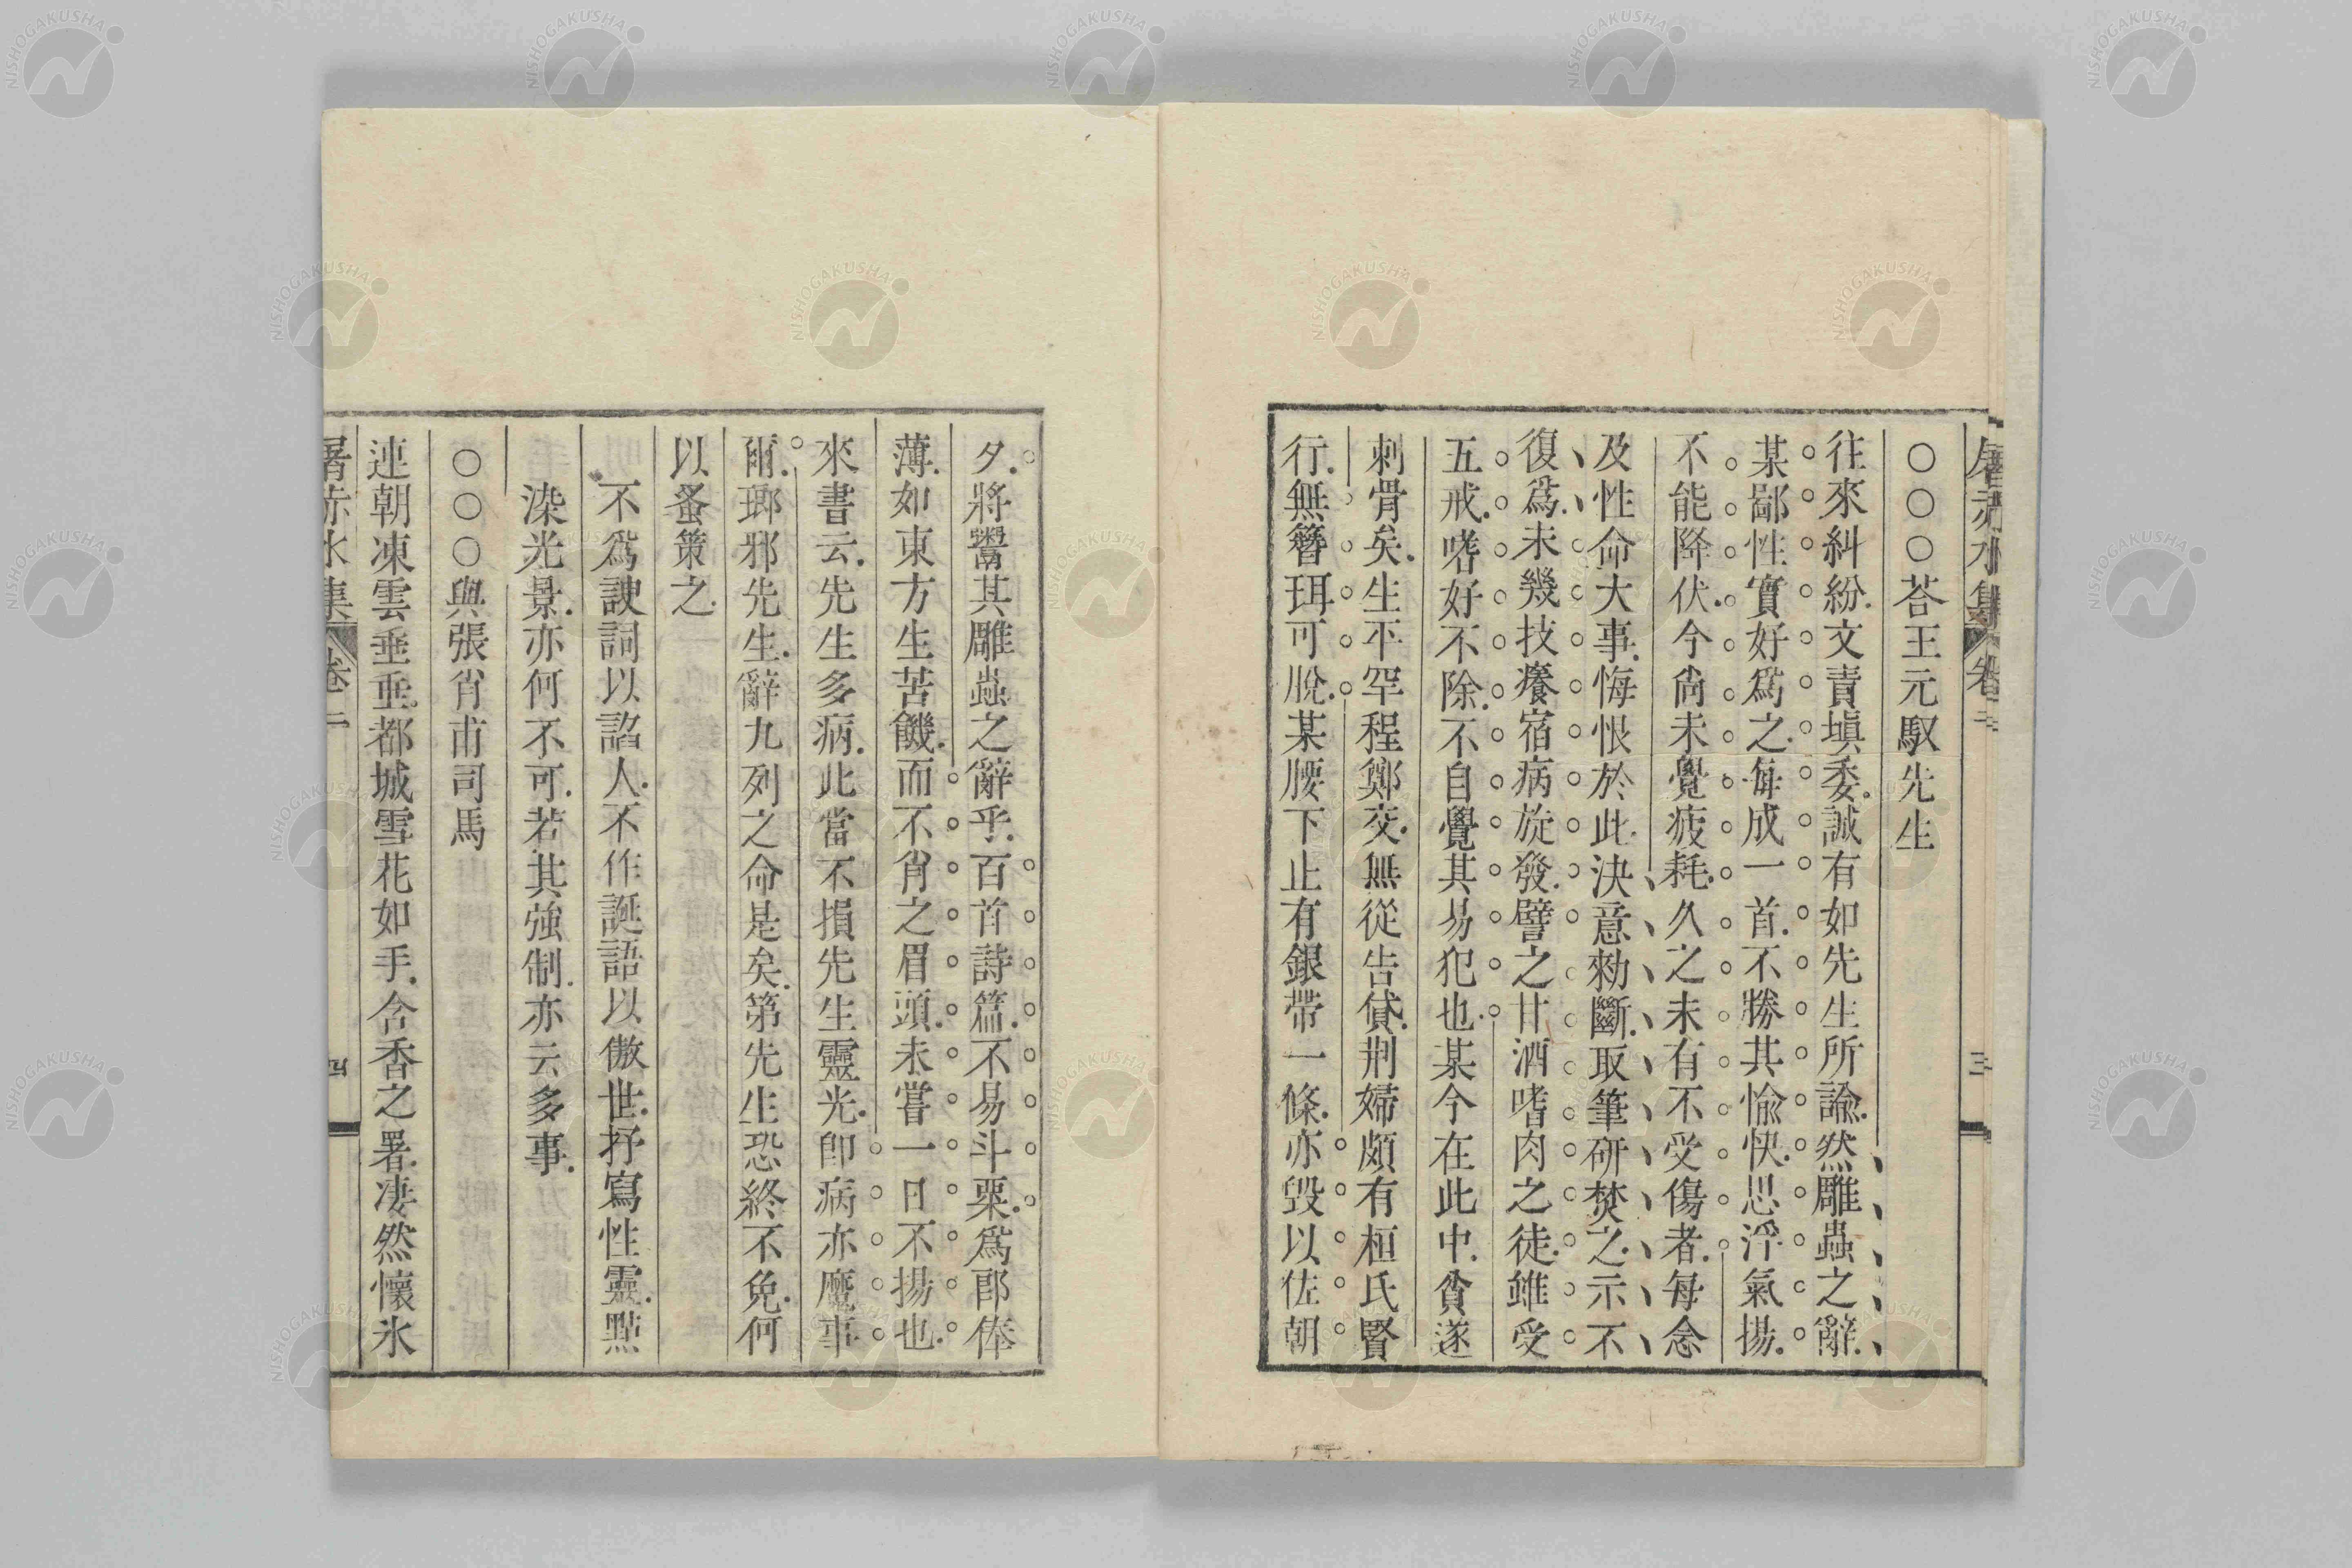 屠赤水集 卷二 三
○○○荅王元馭先生
往來糾紛文責塡委誠有如先生所諭然雕蟲之辭
某鄙性實好爲之每成一首不勝其愉快思浮氣揚
不能降伏今尙未覺疲耗久之未有不受傷者每念
及性命大事悔恨於此決意勑斷取筆硏焚之示不
復爲未幾技癢宿病旋發譬之甘酒嗜肉之徒雖受
五戒嗜好不除不自覺其易犯也某今在此中貧遂
刺骨矣生平罕程鄭交無從告貸荆婦頗有桓氏賢
行無簪珥可脫某腰下止有銀帶一條亦毀以佐朝
夕將鬻其雕蟲之辭乎百首詩篇不易斗粟爲郎俸
薄如東方生苦饑而不肖之眉頭未嘗一日不揚也
來書云先生多病此當不損先生靈光卽病亦魔事
爾瑯邪先生辭九列之命是矣第先生恐終不免何
以蚤策之
不爲諛詞以諂人不作誕語以傲世抒寫性靈點
染光景亦何不可若其強制亦云多事
○○○與張肖甫司馬
連朝凍雲垂垂都城雪花如手含香之署凄然懷氷
屠赤水集 卷二 四